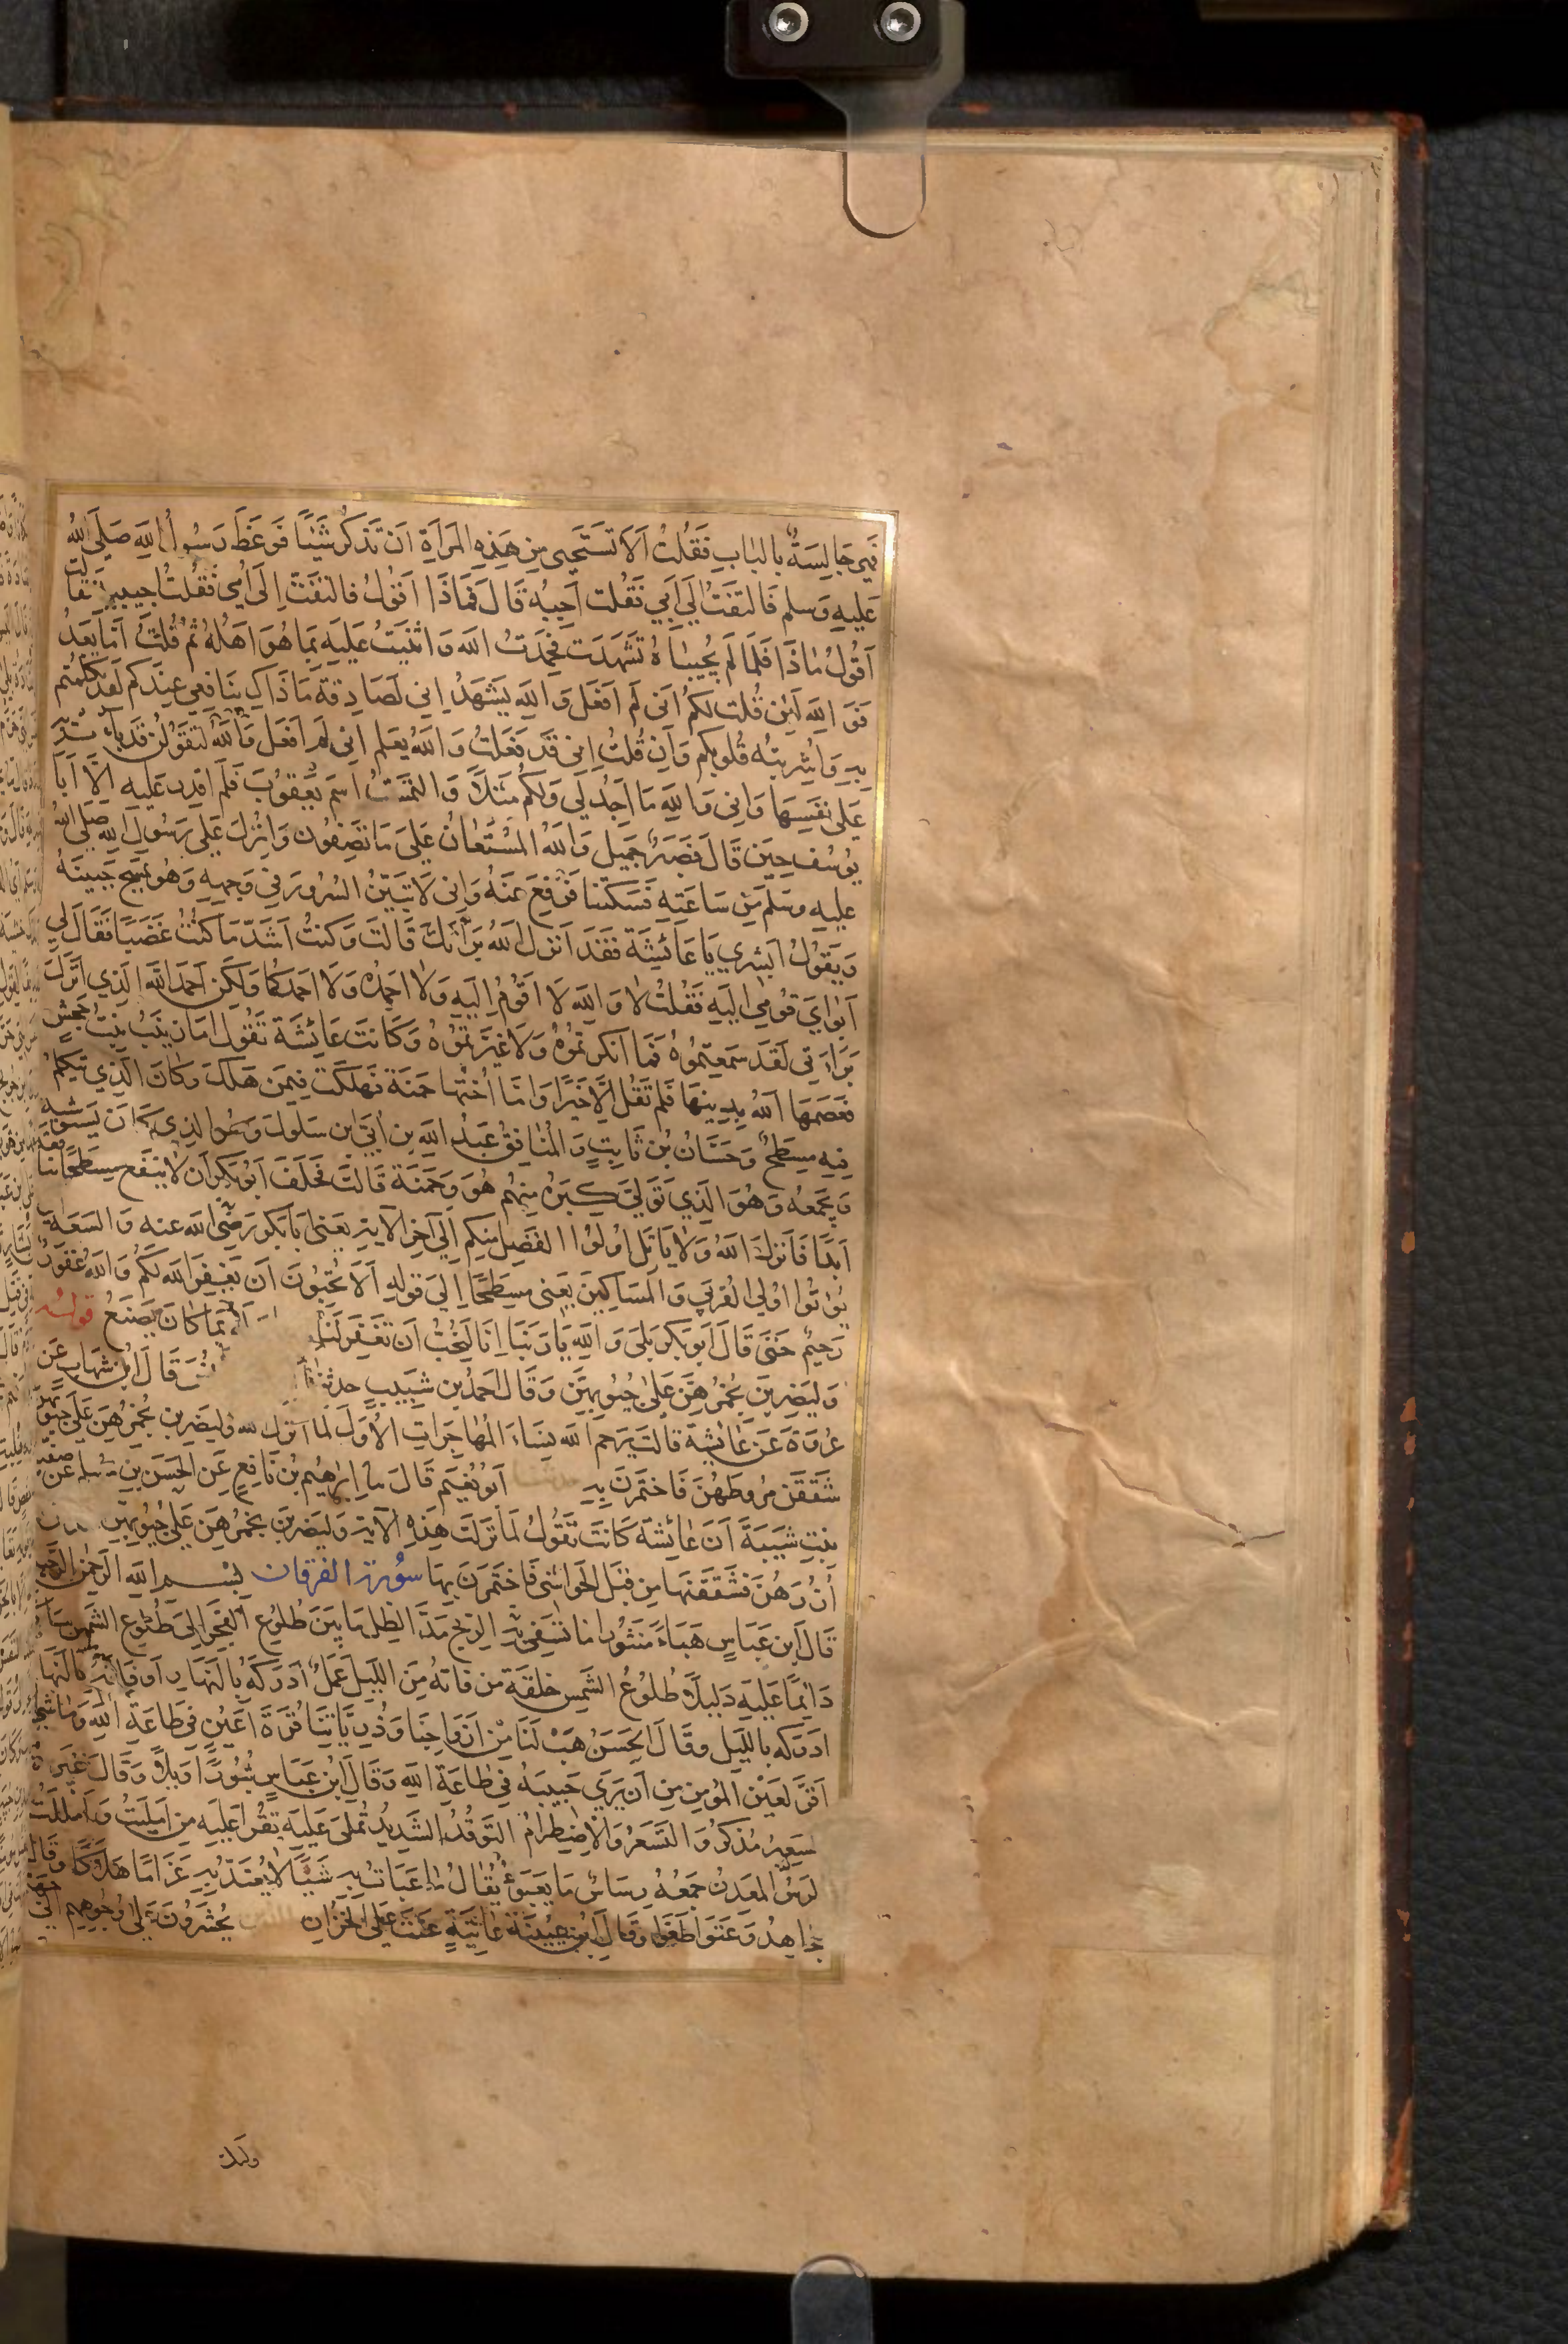 فهي جالسة بالباب فقلت الا تستحيى من هذه المراة ان تذكر شيئا فوعظ رسول الله صلى الله
عليه وسلم فالتفت الى ابي فقلت اجبه قال فماذا اقول فالتفت الى امي فقلت اجيبيه فقالت
اقول ماذا فلما لم يجيباه تشهدت فحمدت الله واثنيت عليه بما هو اهله ثم قلت اما بعد
فو الله لئن قلت لكم اني لم افعل والله يشهد اني لصادقة ما ذاك بنافعي عندكم لقد تكلمتم
به واشربته قلوبكم وان قلت اني قد فعلت والله يعلم اني لم افعل لتقولن قد باءت به
على نفسها واني والله ما اجد لي ولكم مثلا والتمست اسم يعقوب فلم اقدر عليه الا ابا
يوسف حين قال فصبر جميل والله المستعان على ما تصفون وانزل على رسول الله صلى الله
عليه وسلم من ساعته فسكتنا فرفع عنه واني لاتبين السرور في وجهه وهو يمسح جبينه
ويقول ابشري يا عائشة فقد انزل الله براءتك قالت وكنت اشد ما كنت غضبا فقال لي
ابواي قومي اليه فقلت لا والله لا اقوم اليه ولا احمده ولا احمدكما ولكن احمد الله الذي انزل
براءتي لقد سمعتموه فما انكرتموه ولا غيرتموه وكانت عائشة تقول اما زينب بنت جحش
فعصمها الله بدينها فلم تقل الا خيرا واما اختها حمنة فهلكت فيمن هلك وكان الذي يتكلم
فيه مسطح وحسان بن ثابت والمنافق عبد الله بن ابي بن سلول وهو الذي كان يستوشيه
ويجمعه وهو الذي تولى كبره منهم هو وحمنة قالت فحلف ابو بكر ان لا ينفع مسطحا بنافعة
ابدا فانزل الله ولا ياتل اولوا الفضل منكم الى آخر الآية يعني ابا بكر رضى الله عنه والسعة
يؤتوا اولي القربى والمساكين يعني مسطحا الى قوله الا تحبون ان يغفر الله لكم والله غفور
رحيم حتى قال ابو بكر بلى والله يا ربنا انا لنحب ان تغفر لنا بما كان يصنع قوله
وليضربن بخمرهن على جيوبهن وقال احمد بن شبيب حدثنا قال ابن شهاب عن
عروة عن عائشة قالت يرحم الله نساء المهاجرات الاول لما انزل الله وليضربن بخمرهن على جيوبهن
شققن مروطهن فاختمرن به حدثنا ابو نعيم قال نا ابراهيم بن نافع عن الحسن بن مسلم عن صفية
بنت شيبة ان عائشة كانت تقول لما نزلت هذه الآية وليضربن بخمرهن على جيوبهن
ازرهن فشققنها من قبل الحواشى فاختمرن بها سورة الفرقان بسم الله الرحمن الرحيم
قال ابن عباس هباء منثورا ما تسفي به الريح مد الظل ما بين طلوع الفجر الى طلوع الشمس ساكنا
دائما عليه دليلا طلوع الشمس خلفة من فاته من الليل عمل ادركه بالنهار او فاته بالنهار
ادركه بالليل وقال الحسن هب لنا من ازواجنا وذرياتنا قرة اعين في طاعة الله وما شيء
اقر لعين المؤمن من ان يرى حبيبه في طاعة الله وقال ابن عباس ثبورا ويلا وقال غيره
السعير مذكر والتسعر والاضطرام التوقد الشديد تملى عليه تقرا عليه من امليت واملللت
الرس المعدن جمعه رساس ما يعبؤ يقال ما عبات به شيئا لا يعتد به غراما هلاكا وقال
مجاهد وعتوا طغوا وقال ابن عيينة عاتية عتت على الخزان يحشرون على وجوههم الى